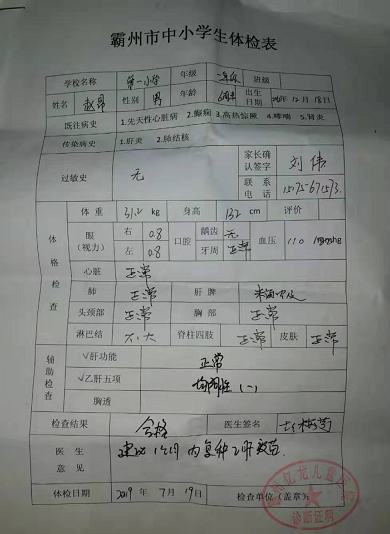 霸州市中小学生体检表
学校名称 第一小学 年级 一年级 班级
姓名 赵昂 性别 男 年龄 6周岁 出生日期 12月18日
既往病史 1.先天性心脏病 2.癫痫 3.高热惊厥 4.哮喘 5.肾炎
传染病史 1.肝炎 2.肺结核
过敏史 无 家长确认签字 刘伟
联系电话
体格检查 体重 31.2 kg 身高 132 cm 评价
眼(视力) 右 0.8 口腔 龋齿 无 血压 110 mmhg
左 0.8 牙周 正常
心脏 正常
肺 正常 肝脾 未触及
头颈部 正常 胸部 正常
淋巴结 不大 脊柱四肢 正常 皮肤 正常
辅助检查 √肝功能 正常
√乙肝五项 均阴性(一)
胸透
检查结果 合格 医生签名
医生意见 建议1个月内复种乙肝疫苗.
体检日期 2019 年 7 月 19 日 检查单位(盖章):
诊断证明